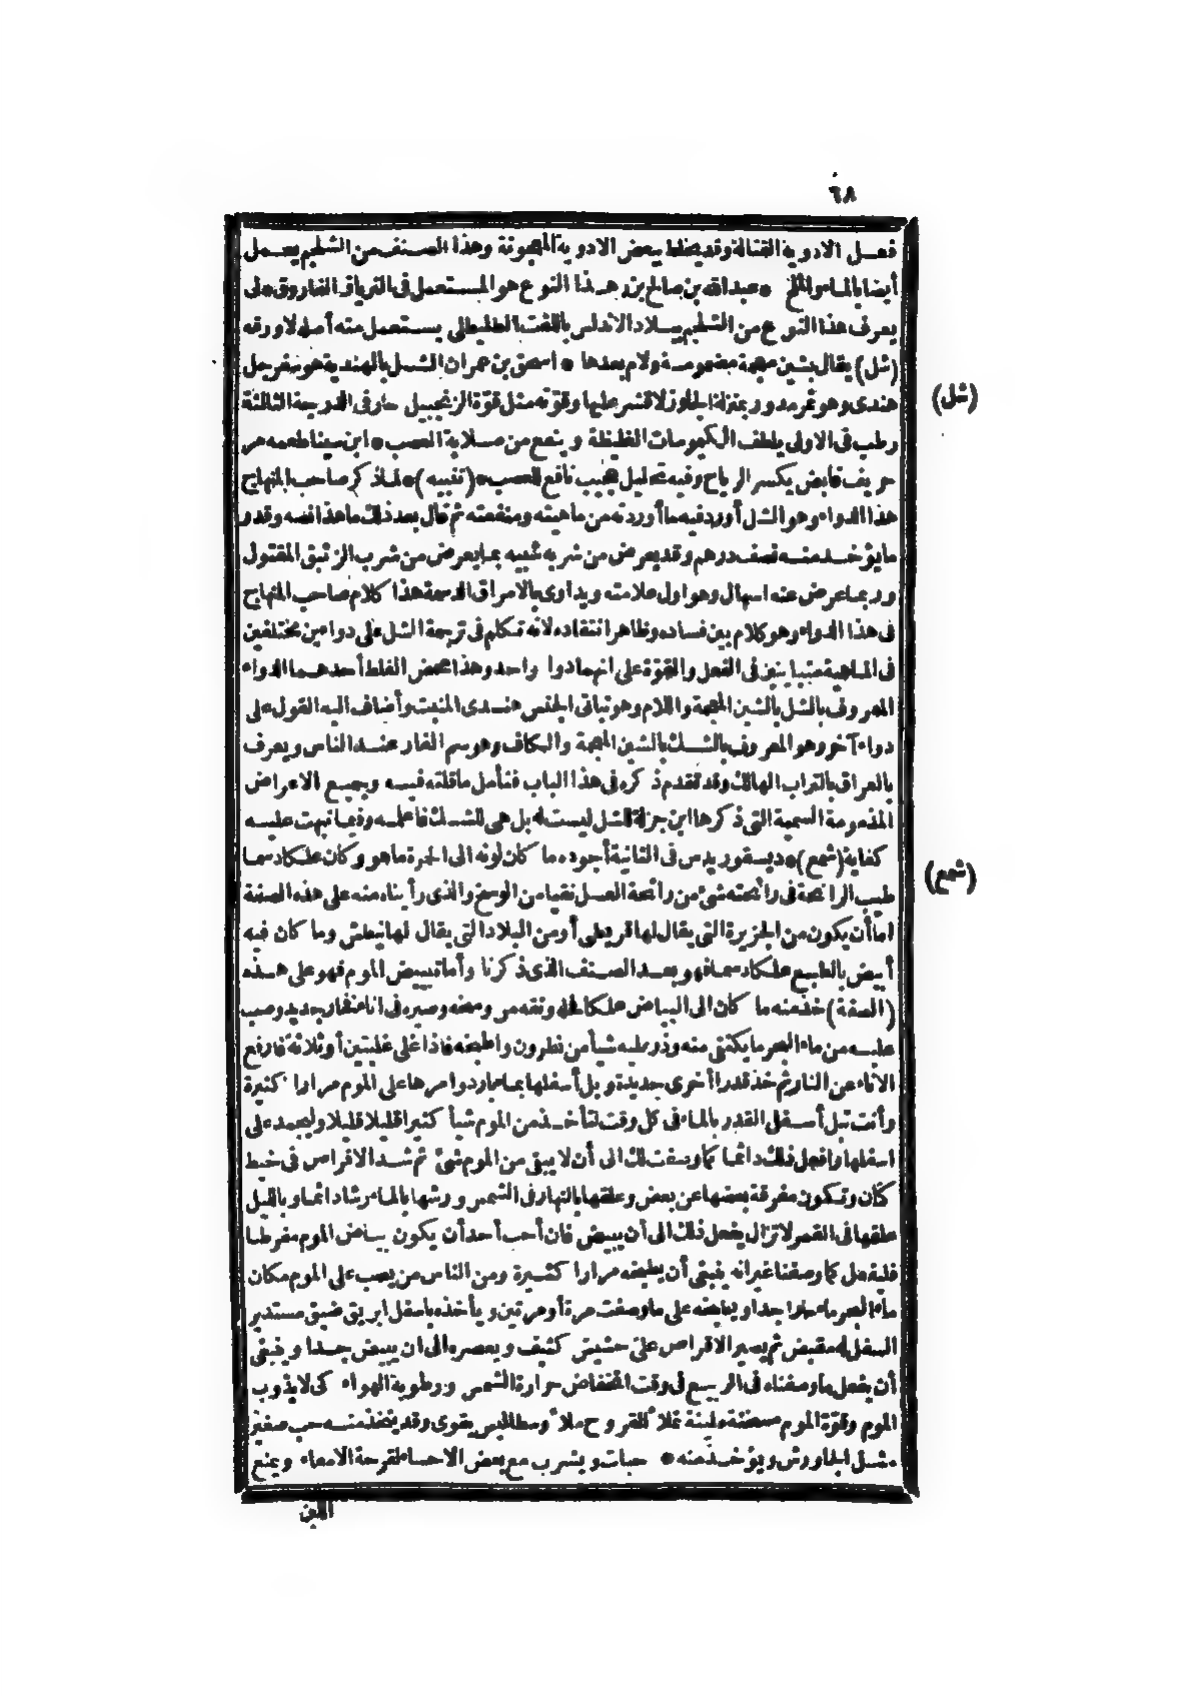 ٦٨
فعل الادوية القتالة وقد يخلط ببعض الادوية المعجونة وهذا الصنف من الشلجم يعمل
أيضا بالماء والملح * عبد الله بن صالح بن هذا النوع هو المستعمل فى الترياق الفاروق على
يعرف هذا النوع من الشلجم ببلاد الاندلس باللفت الطليطلى يستعمل منه أصله لا ورقه
(شل) يقال بشين معجمة مضمومة ولام بعدها * اسحق بن عمران الشل بالهندية هو سفرجل
(شل)
هندى وهو ثمر مدور بمنزلة الجلوز لا قشر عليها وقوته مثل قوة الزنجبيل حار فى الدرجة الثالثة
رطب فى الاولى يلطف الكيموسات الغليظة وينفع من صلابة العصب * ابن سينا طعمه مر
حريف قابض يكسر الرياح وفيه تحليل عجيب نافع للعصب * (تنبيه) * لما ذكر صاحب المنهاج
هذا الدواء وهو الشل أورد فيه ما أوردته من ماهيته ومنفعته ثم قال بعد ذلك ما هذا نصه وقدر
ما يؤخذ منه نصف درهم وقد يعرض من شربه شبيه بما يعرض من شرب الزئبق المقتول
وربما عرض عنه اسهال وهو اول علامته ويداوى بالامراق الدسمة هذا كلام صاحب المنهاج
فى هذا الدواء وهو كلام بين فساده وظاهر انتقاده لانه تكلم فى ترجمة الشل على دواءين مختلفين
فى الماهية متباينين فى الفعل والقوة على انهما دوا واحد وهذا محض الغلط أحدهما الدواء
المعروف بالشل بالشين المعجمة واللام وهو نباتى الجنس هندى المنبت وأضاف اليه القول على
دواء آخر وهو المعروف بالشك بالشين المعجمة والكاف وهو سم الفار عند الناس ويعرف
بالعراق بالتراب الهالك وقد تقدم ذكره فى هذا الباب فتأمل ما قلته فيه وجميع الاعراض
المذمومة السمية التى ذكرها ابن جزلة للشل ليست له بل هى للشك فاعلمه وفيما نبهت عليه
كفاية (شمع) * ديسقوريدس فى الثانية أجوده ما كان لونه الى الحمرة ما هو وكان علكا دسما
(شمع)
طيب الرائحة فى رائحته شئ من رائحة العسل نقيا من الوسخ والذى رأيناه منه على هذه الصفة
اما أن يكون من الجزيرة التى يقال لها قريطى أو من البلاد التى يقال لها نيطش وما كان فيه
أبيض بالطبع علكا دسما فهو بعد الصنف الذى ذكرنا وأما تبييض الموم فهو على هذه
(الصفة) خذ منه ما كان الى البياض علكا ونقه من وسخه وصيره فى اناء فخار جديد وصب
عليه من ماء البحر ما يكتفى منه وذر عليه شيأ من نطرون واطبخه فاذا غلى غليتين أو ثلاثة فارفع
الاناء عن النار ثم خذ قدرا أخرى جديدة وبل أسفلها بماء بارد وامرها على الموم مرارا كثيرة
وأنت تبل أسفل القدر بالماء فى كل وقت لتأخذ من الموم شيأ كثيرا قليلا قليلا وليجمد على
اسفلها وافعل ذلك دائما كما وصفت لك الى أن لا يبقى من الموم شئ ثم شد الاقراص فى خيط
كتان وتكون مفرقة بعضها عن بعض وعلقها بالنهار فى الشمس ورشها بالماء رشا دائما وبالليل
علقها فى القمر لا تزال يفعل ذلك الى أن يبيض فان أحب أحد أن يكون بياض الموم مفرطا
فليفعل كما وصفنا غير انه ينبغى أن يطبخه مرارا كثيرة ومن الناس من يصب على الموم مكان
ماء البحر ماء حارا جدا ويطبخه على ما وصفت مرة أو مرتين ويأخذه باسفل ابريق ضيق مستدير
السفل له مقبض ثم يصير الاقراص على حشيش كثيف ويعصره الى ان يبيض جدا وينبغى
أن يفعل ما وصفناه فى الربيع فى وقت انخفاض حرارة الشمس ورطوبة الهواء كى لا يذوب
الموم وقوة الموم مسخنة ملينة تملا القروح ملا وسطا ليس بقوى وقد يتخذ منه حب صغير
مثل الجاورش ويؤخذ منه * حبات ويشرب مع بعض الاحساء لقرحة الامعاء ويمنع
اللبن